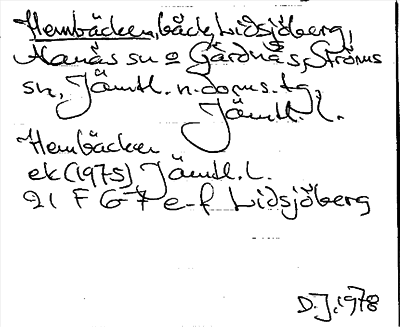 Hembäcken, bäck, Lidsjöberg,
Alanäs sn o Gärdnäs, Ströms
sn, Jämtl. n. doms. tg,
Jämtl. l.
Hembäcken
ek (1975) Jämtl. l.
21 F 6-7 e-f Lidsjöberg
D.J. 1978